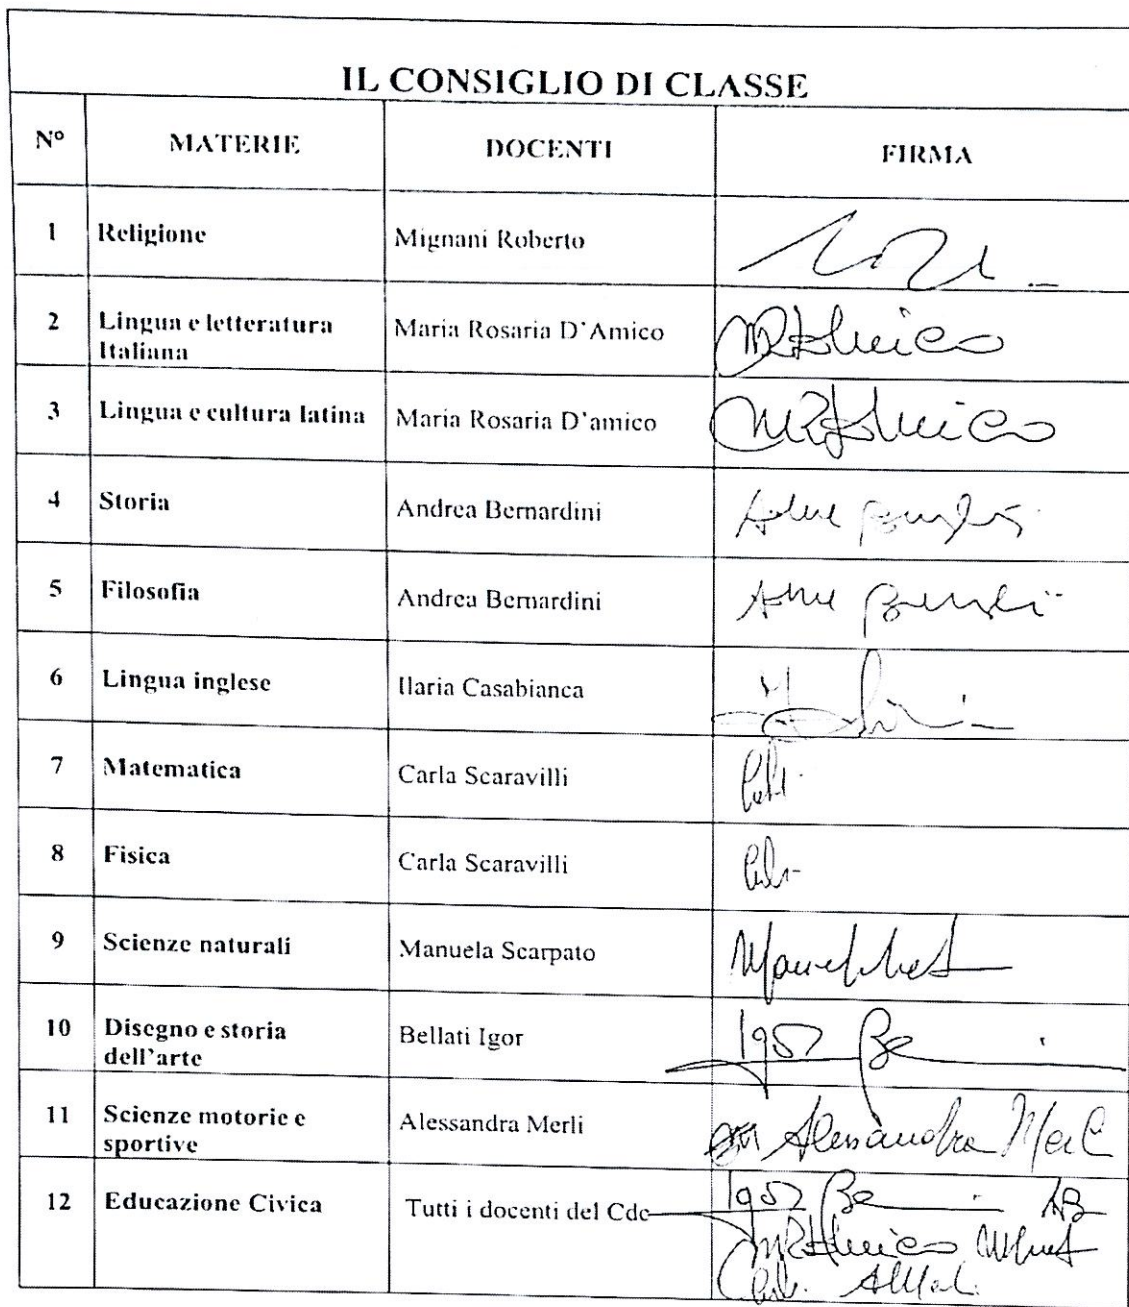 IL CONSIGLIO DI CLASSE
N° MATERIE DOCENTI FIRMA
1 Religione Mignani Roberto
2 Lingua e letteratura Italiana Maria Rosaria D'Amico MRD'Amico
3 Lingua e cultura latina Maria Rosaria D'amico MRD'Amico
4 Storia Andrea Bernardini
5 Filosofia Andrea Bernardini
6 Lingua inglese Ilaria Casabianca
7 Matematica Carla Scaravilli
8 Fisica Carla Scaravilli
9 Scienze naturali Manuela Scarpato
10 Disegno e storia dell'arte Bellati Igor
11 Scienze motorie e sportive Alessandra Merli Alessandra Merli
12 Educazione Civica Tutti i docenti del Cdc AB
MRD'Amico